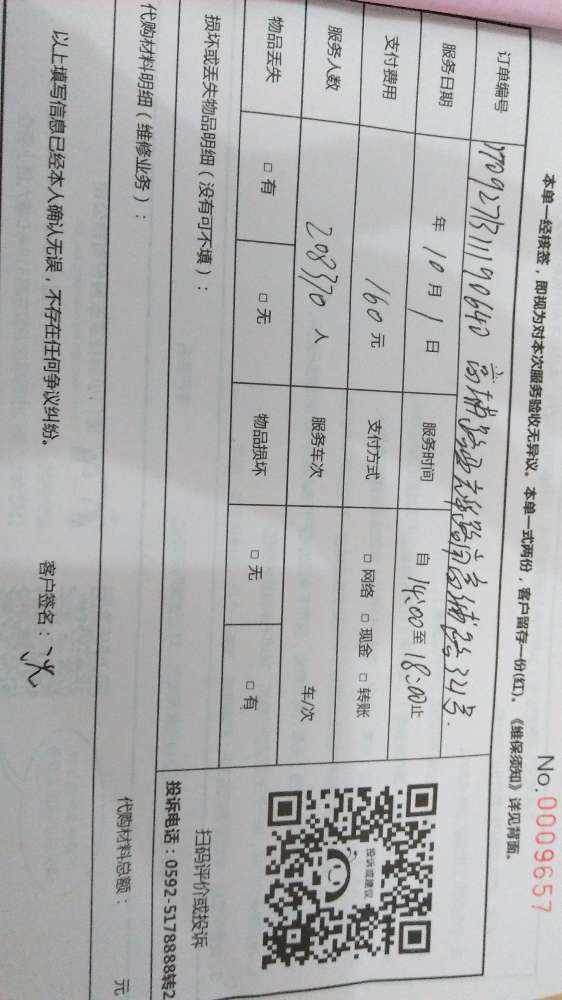 No.0009657
本单一经核签，即视为对本次服务验收无异议。本单一式两份，客户留存一份(红)。《维保须知》详见背面。
订单编号
服务日期 年 10 月 1 日 服务时间 自 14:00 至 18:00 止
支付费用 160 元 支付方式 □ 网络 □ 现金 □ 转账
服务人数 208370 人 服务车次 车/次
物品丢失 □ 有 □ 无 物品损坏 □ 无 □ 有
损坏或丢失物品明细（没有可不填）：
投诉或建议
扫码评价或投诉
投诉电话：0592-5178888转2
代购材料明细（维修业务）：
代购材料总额： 元
以上填写信息已经本人确认无误，不存在任何争议纠纷。 客户签名：